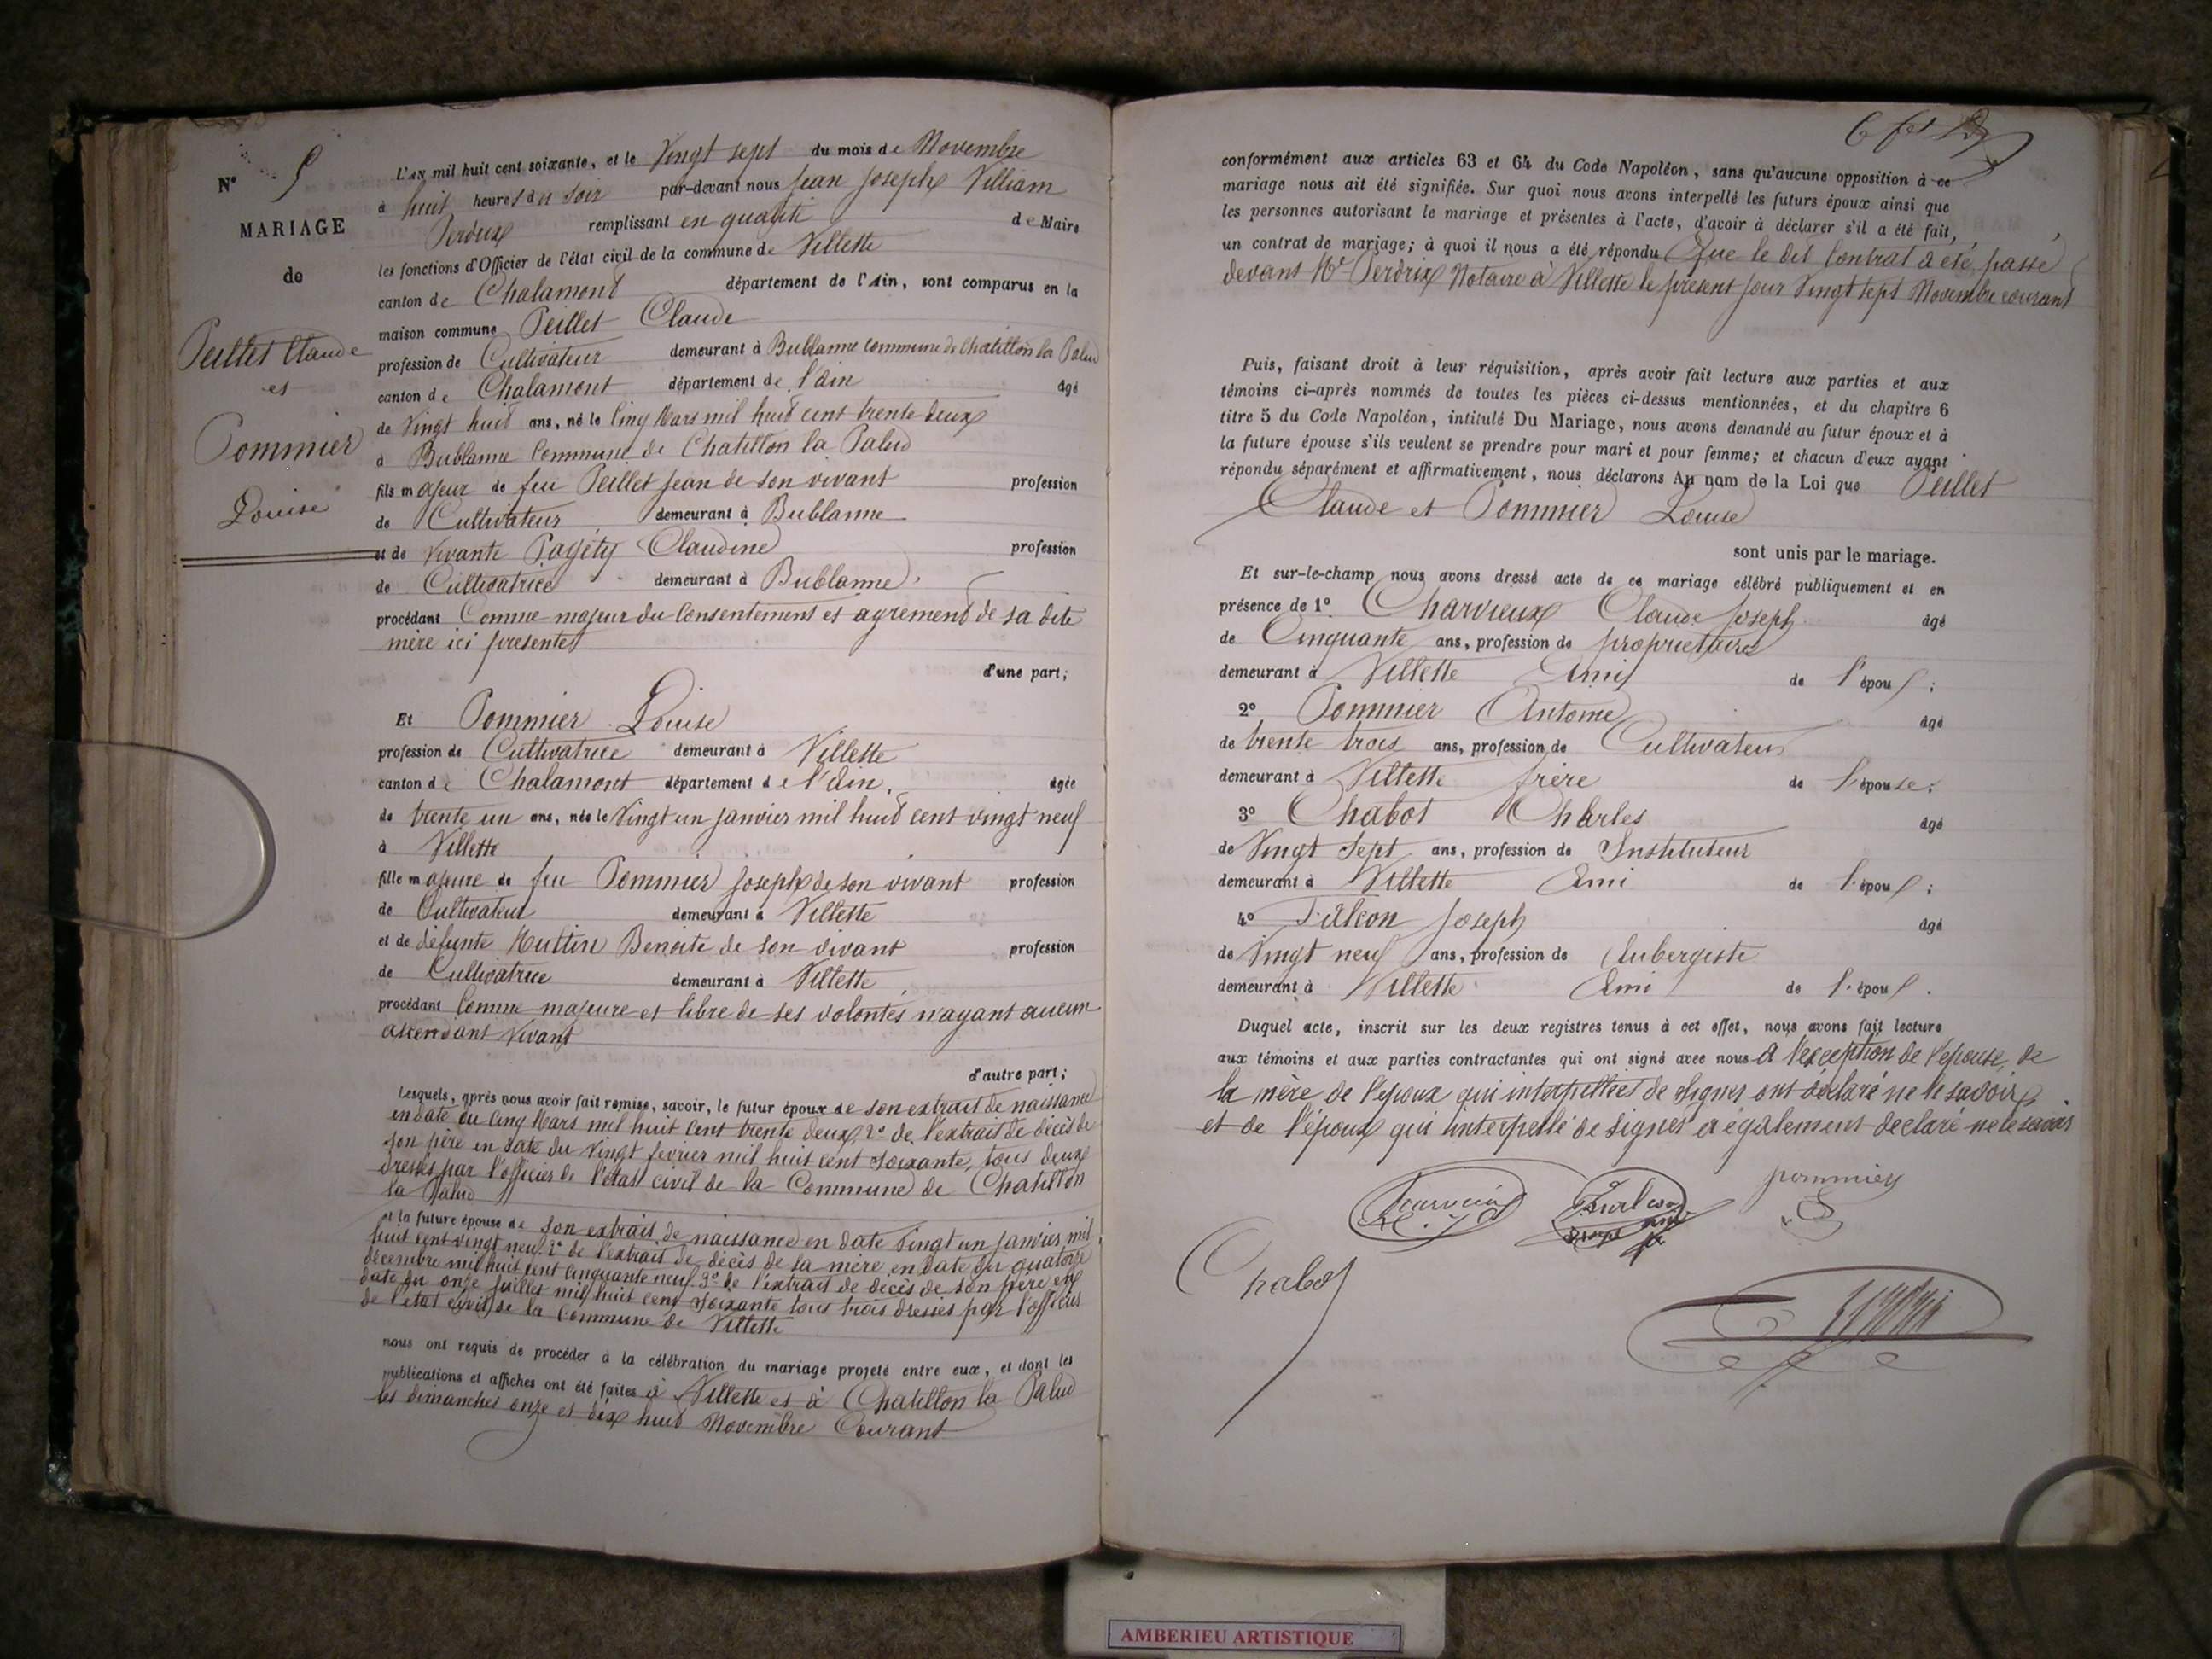 N° 5
MARIAGE
de
Peillet Claude
et
Pommier
Louise
L'AN mil huit cent soixante, et le Vingt sept du mois de Novembre
à huit heures du soir par-devant nous Jean Joseph Villiam
Perdrix remplissant en qualité de Maire
les fonctions d'Officier de l'état civil de la commune de Villette
canton de Chalamont département de l'Ain, sont comparus en la
maison commune Peillet Claude
profession de Cultivateur demeurant à Bublanne commune de Chatillon la Palud
canton de Chalamont département de l'ain âgé
de Vingt huit ans, né le Cinq Mars mil huit cent trente deux
à Bublanne Commune de Chatillon la Palud
fils majeur de feu Peillet Jean de son vivant profession
de Cultivateur demeurant à Bublanne
et de vivante Pagéty Claudine profession
de Cultivatrice demeurant à Bublanne
procédant Comme majeur du Consentement et agrement de sa dite
mère ici presente
d'une part;
Et Pommier Louise
profession de Cultivatrice demeurant à Villette
canton de Chalamont département de l'Ain. âgée
de trente un ans, née le Vingt un janvier mil huit cent vingt neuf
à Villette
fille majeure de feu Pommier Joseph de son vivant profession
de Cultivateur demeurant à Villette
et de défunte Muttin Benoite de son vivant profession
de Cultivatrice demeurant à Villette
procédant Comme majeure et libre de ses volontés n'ayant aucun
ascendant Vivant
d'autre part;
Lesquels, après nous avoir fait remise, savoir, le futur époux de son extrait de naissance
en date du Cinq Mars mil huit cent trente deux, 2° de l'extrait de décès de
son père en date du vingt fevrier mil huit cent soixante, tous deux
dressés par l'officier de l'état civil de la Commune de Chatillon
la Palud
et la future épouse de son extrait de naissance en date Vingt un janvier mil
huit cent vingt neuf. 2° de l'extrait de décès de sa mère en date du quatorze
décembre mil huit cent cinquante neuf 3° de l'extrait de décès de son père en
date du onze juillet mil huit cent soixante tous trois dressés par l'officier
de l'état civil de la Commune de Villette
nous ont requis de procéder à la célébration du mariage projeté entre eux, et dont les
publications et affiches ont été faites à Villette et à Chatillon la Palud
les dimanches onze et dix huit Novembre Courant
conformément aux articles 63 et 64 du Code Napoléon, sans qu'aucune opposition à ce
mariage nous ait été signifiée. Sur quoi nous avons interpellé les futurs époux ainsi que
les personnes autorisant le mariage et présentes à l'acte, d'avoir à déclarer s'il a été fait,
un contrat de mariage; à quoi il nous a été répondu Que le dit Contrat a été passé
devant Me Perdrix Notaire à Villette le present jour Vingt sept Novembre courant
Puis, faisant droit à leur réquisition, après avoir fait lecture aux parties et aux
témoins ci-après nommés de toutes les pièces ci-dessus mentionnées, et du chapitre 6
titre 5 du Code Napoléon, intitulé Du Mariage, nous avons demandé au futur époux et à
la future épouse s'ils veulent se prendre pour mari et pour femme; et chacun d'eux ayant
répondu séparément et affirmativement, nous déclarons Au nom de la Loi que Peillet
Claude et Pommier Louise
sont unis par le mariage.
Et sur-le-champ nous avons dressé acte de ce mariage célébré publiquement et en
présence de 1° Charvieux Claude Joseph âgé
de Cinquante ans, profession de propriétaire
demeurant à Villette Ami de l'époux;
2° Pommier Antoine âgé
de trente trois ans, profession de Cultivateur
demeurant à Villette frère de l'épouse;
3° Chabot Charles âgé
de Vingt Sept ans, profession de Instituteur
demeurant à Villette Ami de l'époux;
4° Joseph âgé
de Vingt neuf ans, profession de Aubergiste
demeurant à Villette Ami de l'époux.
Duquel acte, inscrit sur les deux registres tenus à cet effet, nous avons fait lecture
aux témoins et aux parties contractantes qui ont signé avec nous A l'exception de l'épouse, de
la mère de l'époux qui interpellées de signer ont déclaré ne le savoir
et de l'époux qui interpellé de signer a également declaré ne le savoir
pommier
Chabot
AMBERIEU ARTISTIQUE